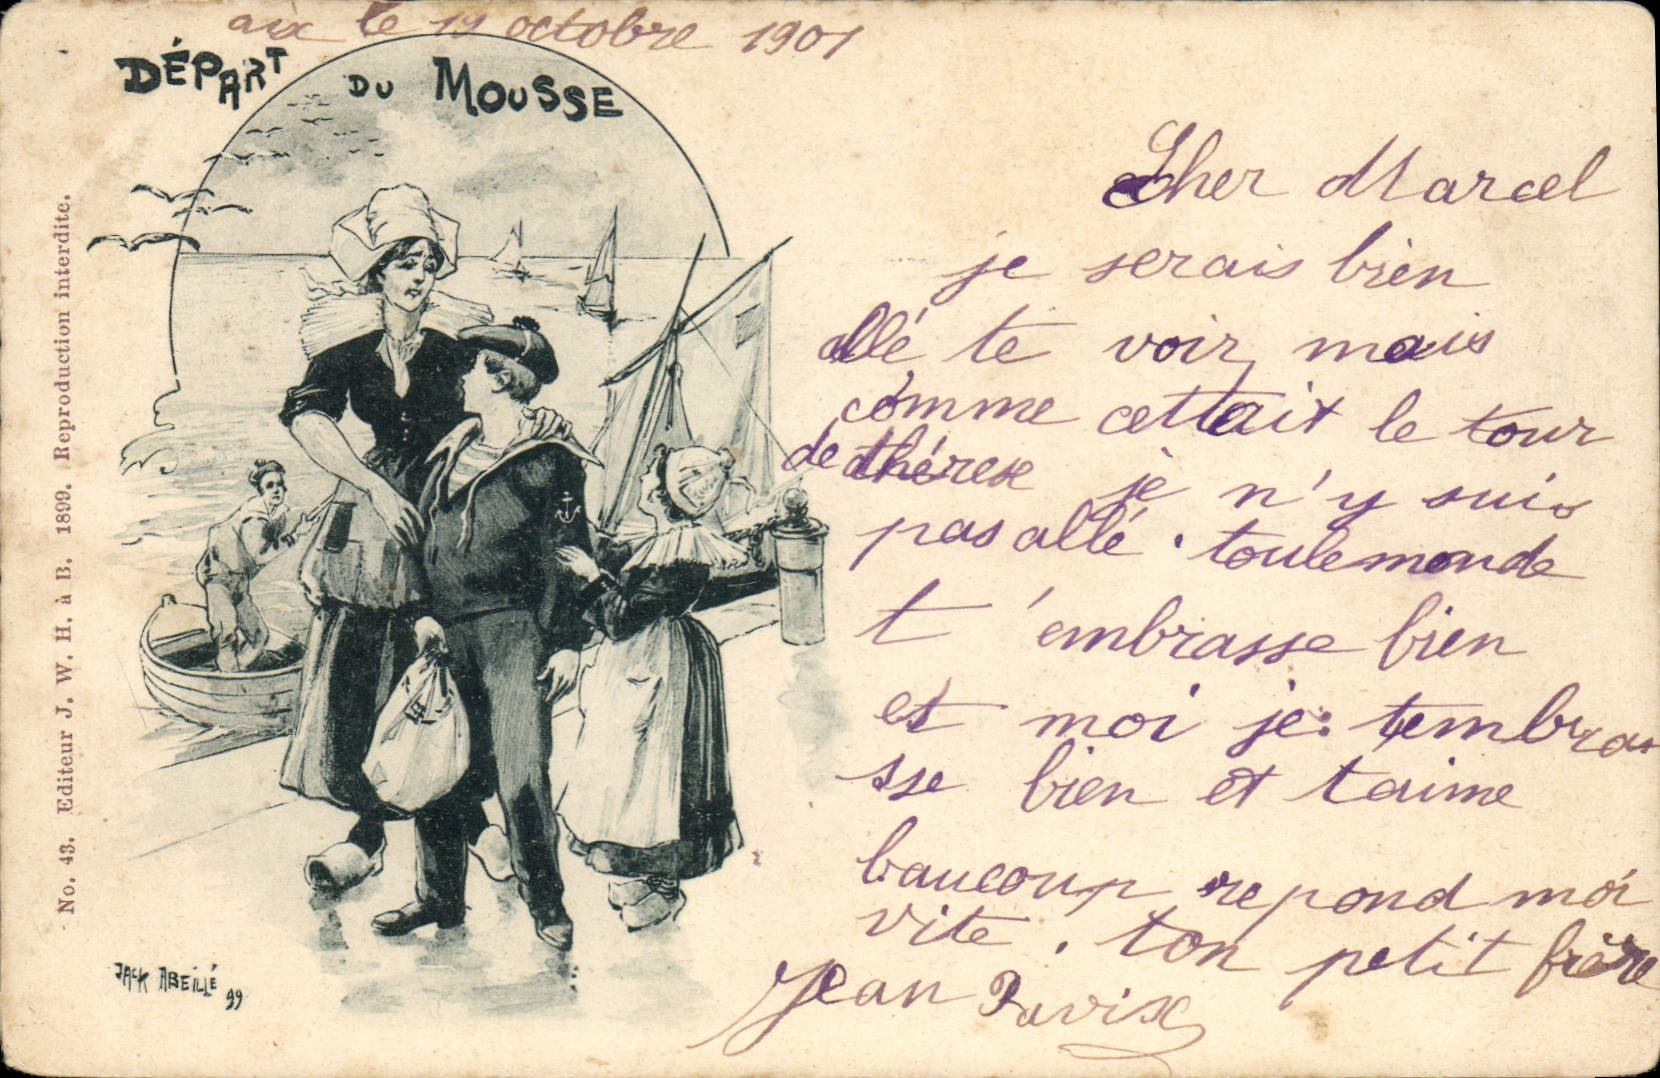 aix le 19 octobre 1901
DÉPART DU MOUSSE
No. 43. Editeur J. W. H. à B. 1899. Reproduction interdite.
Cher Marcel
je serais bien
allé te voir mais
comme cettait le tour
de thérese je n'y suis
pas allé. toulemonde
t'embrasse bien
et moi je tembras
sse bien et taime
baucoup repond moi
vite. ton petit frère
Jean
JACK ABEILLÉ
99